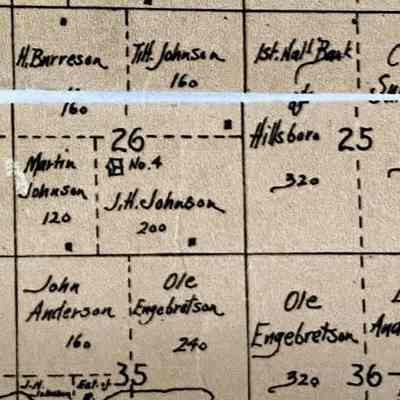 H. Burreson
160
T.H. Johnson
160
1st. Nat'l Bank
of
Hillsboro
320
26
25
Martin
Johnson
120
No. 4
J.H. Johnson
200
John
Anderson
160
Ole
Engebretson
240
Ole
Engebretson
320
35
36
J.H.
Johnson
Est. of